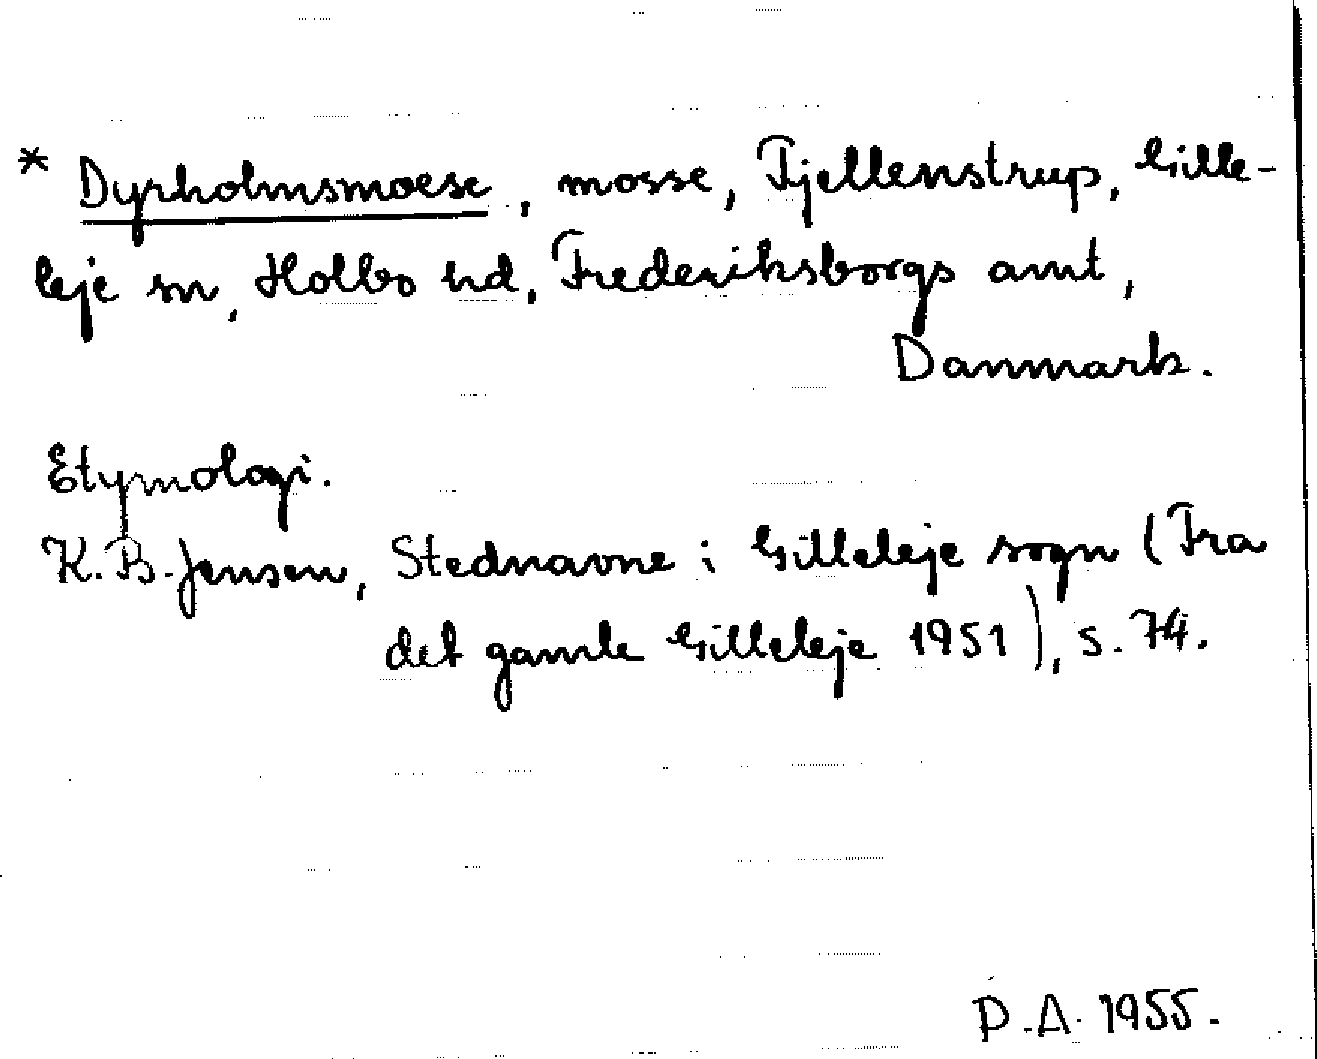 * Dyrholmsmoese, mosse, Fjellenstrup, Gille-
leje sn, Holbo hd, Frederiksborgs amt,
Danmark.
Etymologi.
K. B. Jensen, Stednavne i Gilleleje sogn (Fra
det gamle Gilleleje 1951), s. 74.
P.A. 1955.